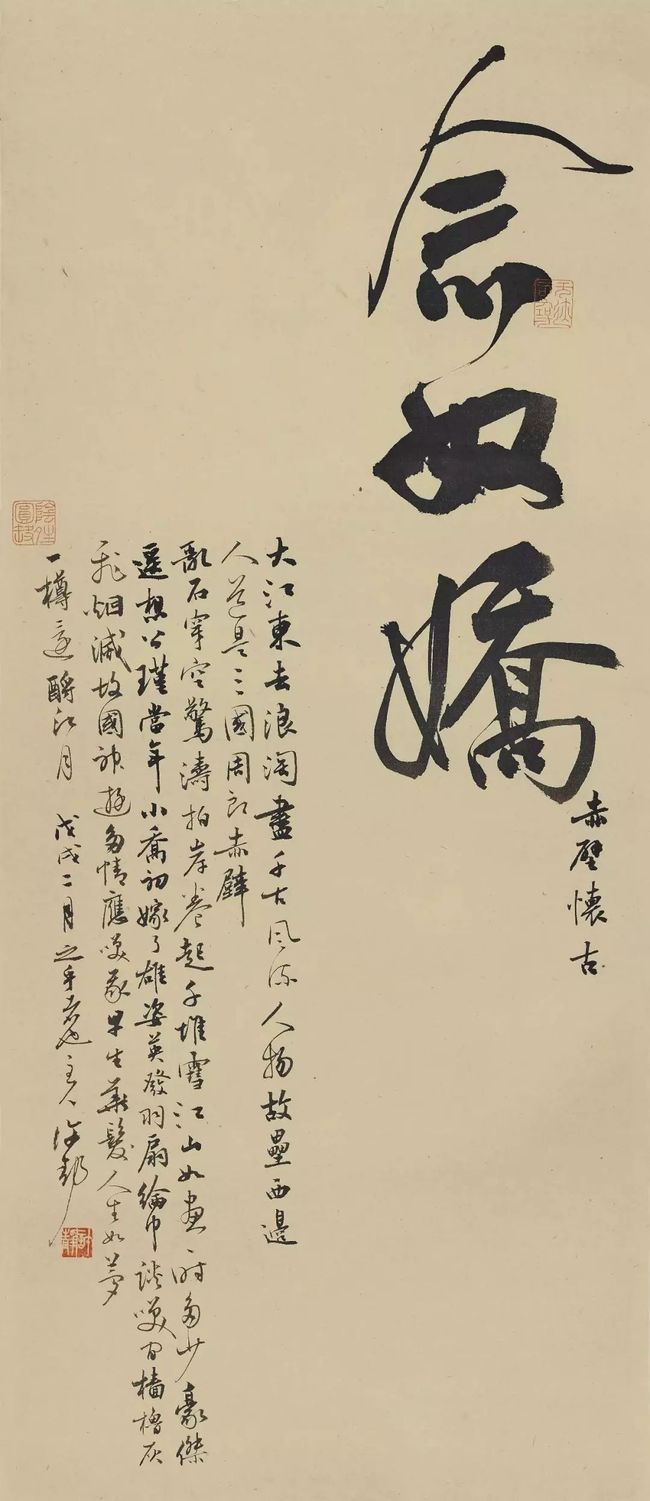 念奴嬌
赤壁懷古
大江東去浪淘盡千古風流人物故壘西邊
人道是三國周郎赤壁
亂石穿空驚濤拍岸卷起千堆雪江山如畫一時多少豪傑
遥想公瑾當年小喬初嫁了雄姿英發羽扇綸巾談笑間檣櫓灰
飛烟滅故國神遊多情應笑我早生華髮人生如夢
一樽還酹江月 戊戌二月 主人許靜
許靜